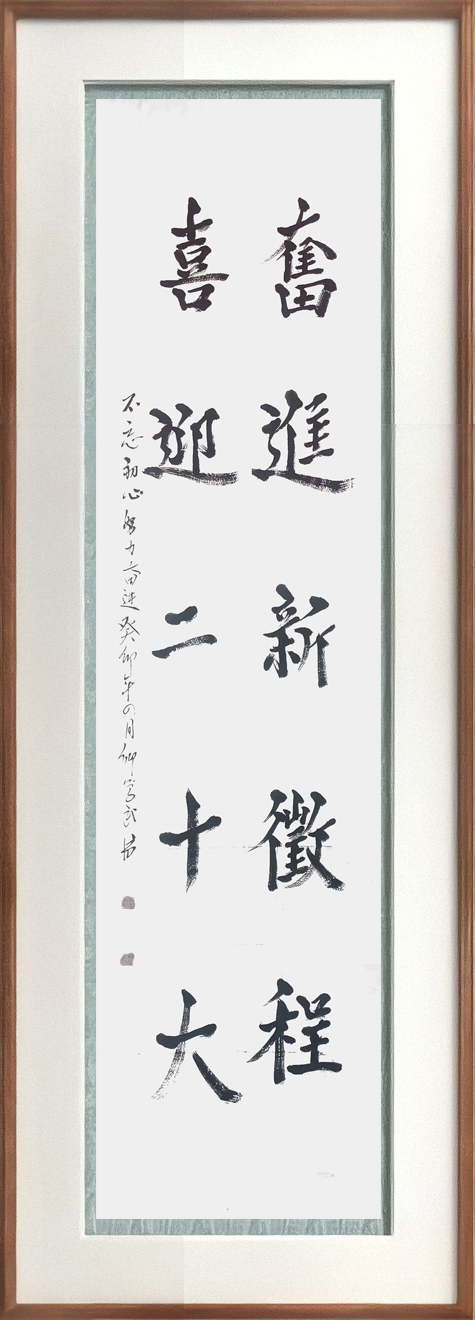 奮進新徵程
喜迎二十大
不忘初心努力奋进癸卯年の月仰